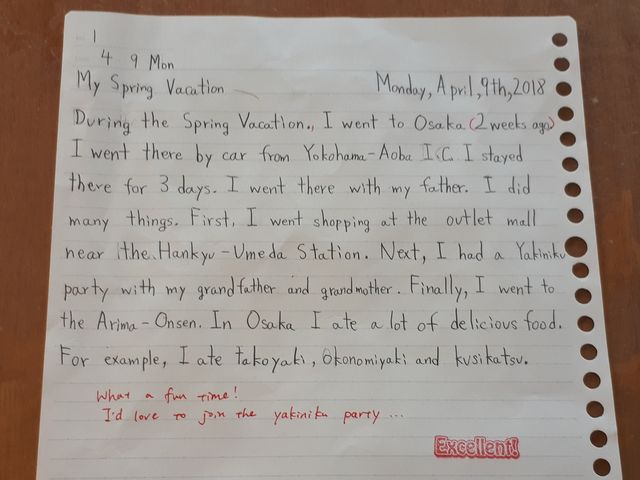 1
4 9 Mon
My Spring Vacation Monday, April, 9th, 2018
During the Spring Vacation., I went to Osaka (2 weeks ago)
I went there by car from Yokohama-Aoba I.C. I stayed
there for 3 days. I went there with my father. I did
many things. First, I went shopping at the outlet mall
near the Hankyu-Umeda Station. Next, I had a Yakiniku
party with my grandfather and grandmother. Finally, I went to
the Arima-Onsen. In Osaka I ate a lot of delicious food.
For example, I ate takoyaki, Okonomiyaki and kusikatsu.
What a fun time!
I'd love to join the yakiniku party ...
Excellent!